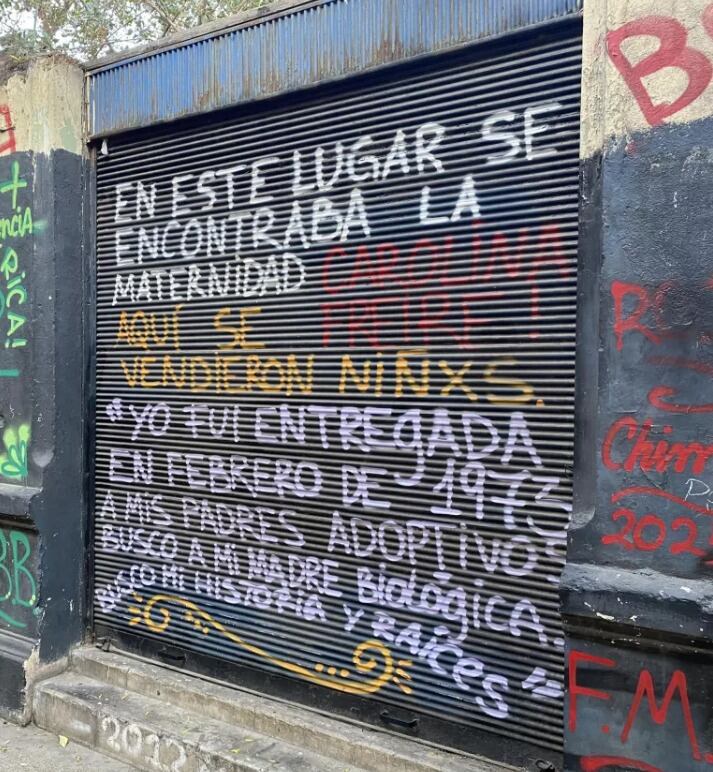 EN ESTE LUGAR SE
ENCONTRABA LA
MATERNIDAD CAROLINA
FREIRE!
AQUÍ SE
VENDIERON NIÑXS.
"YO FUI ENTREGADA
EN FEBRERO DE 1973
A MIS PADRES ADOPTIVOS
BUSCO A MI MADRE BIOLÓGICA,
BUSCO MI HISTORIA Y RAÍCES"
RICA!
BB
2022
F.M